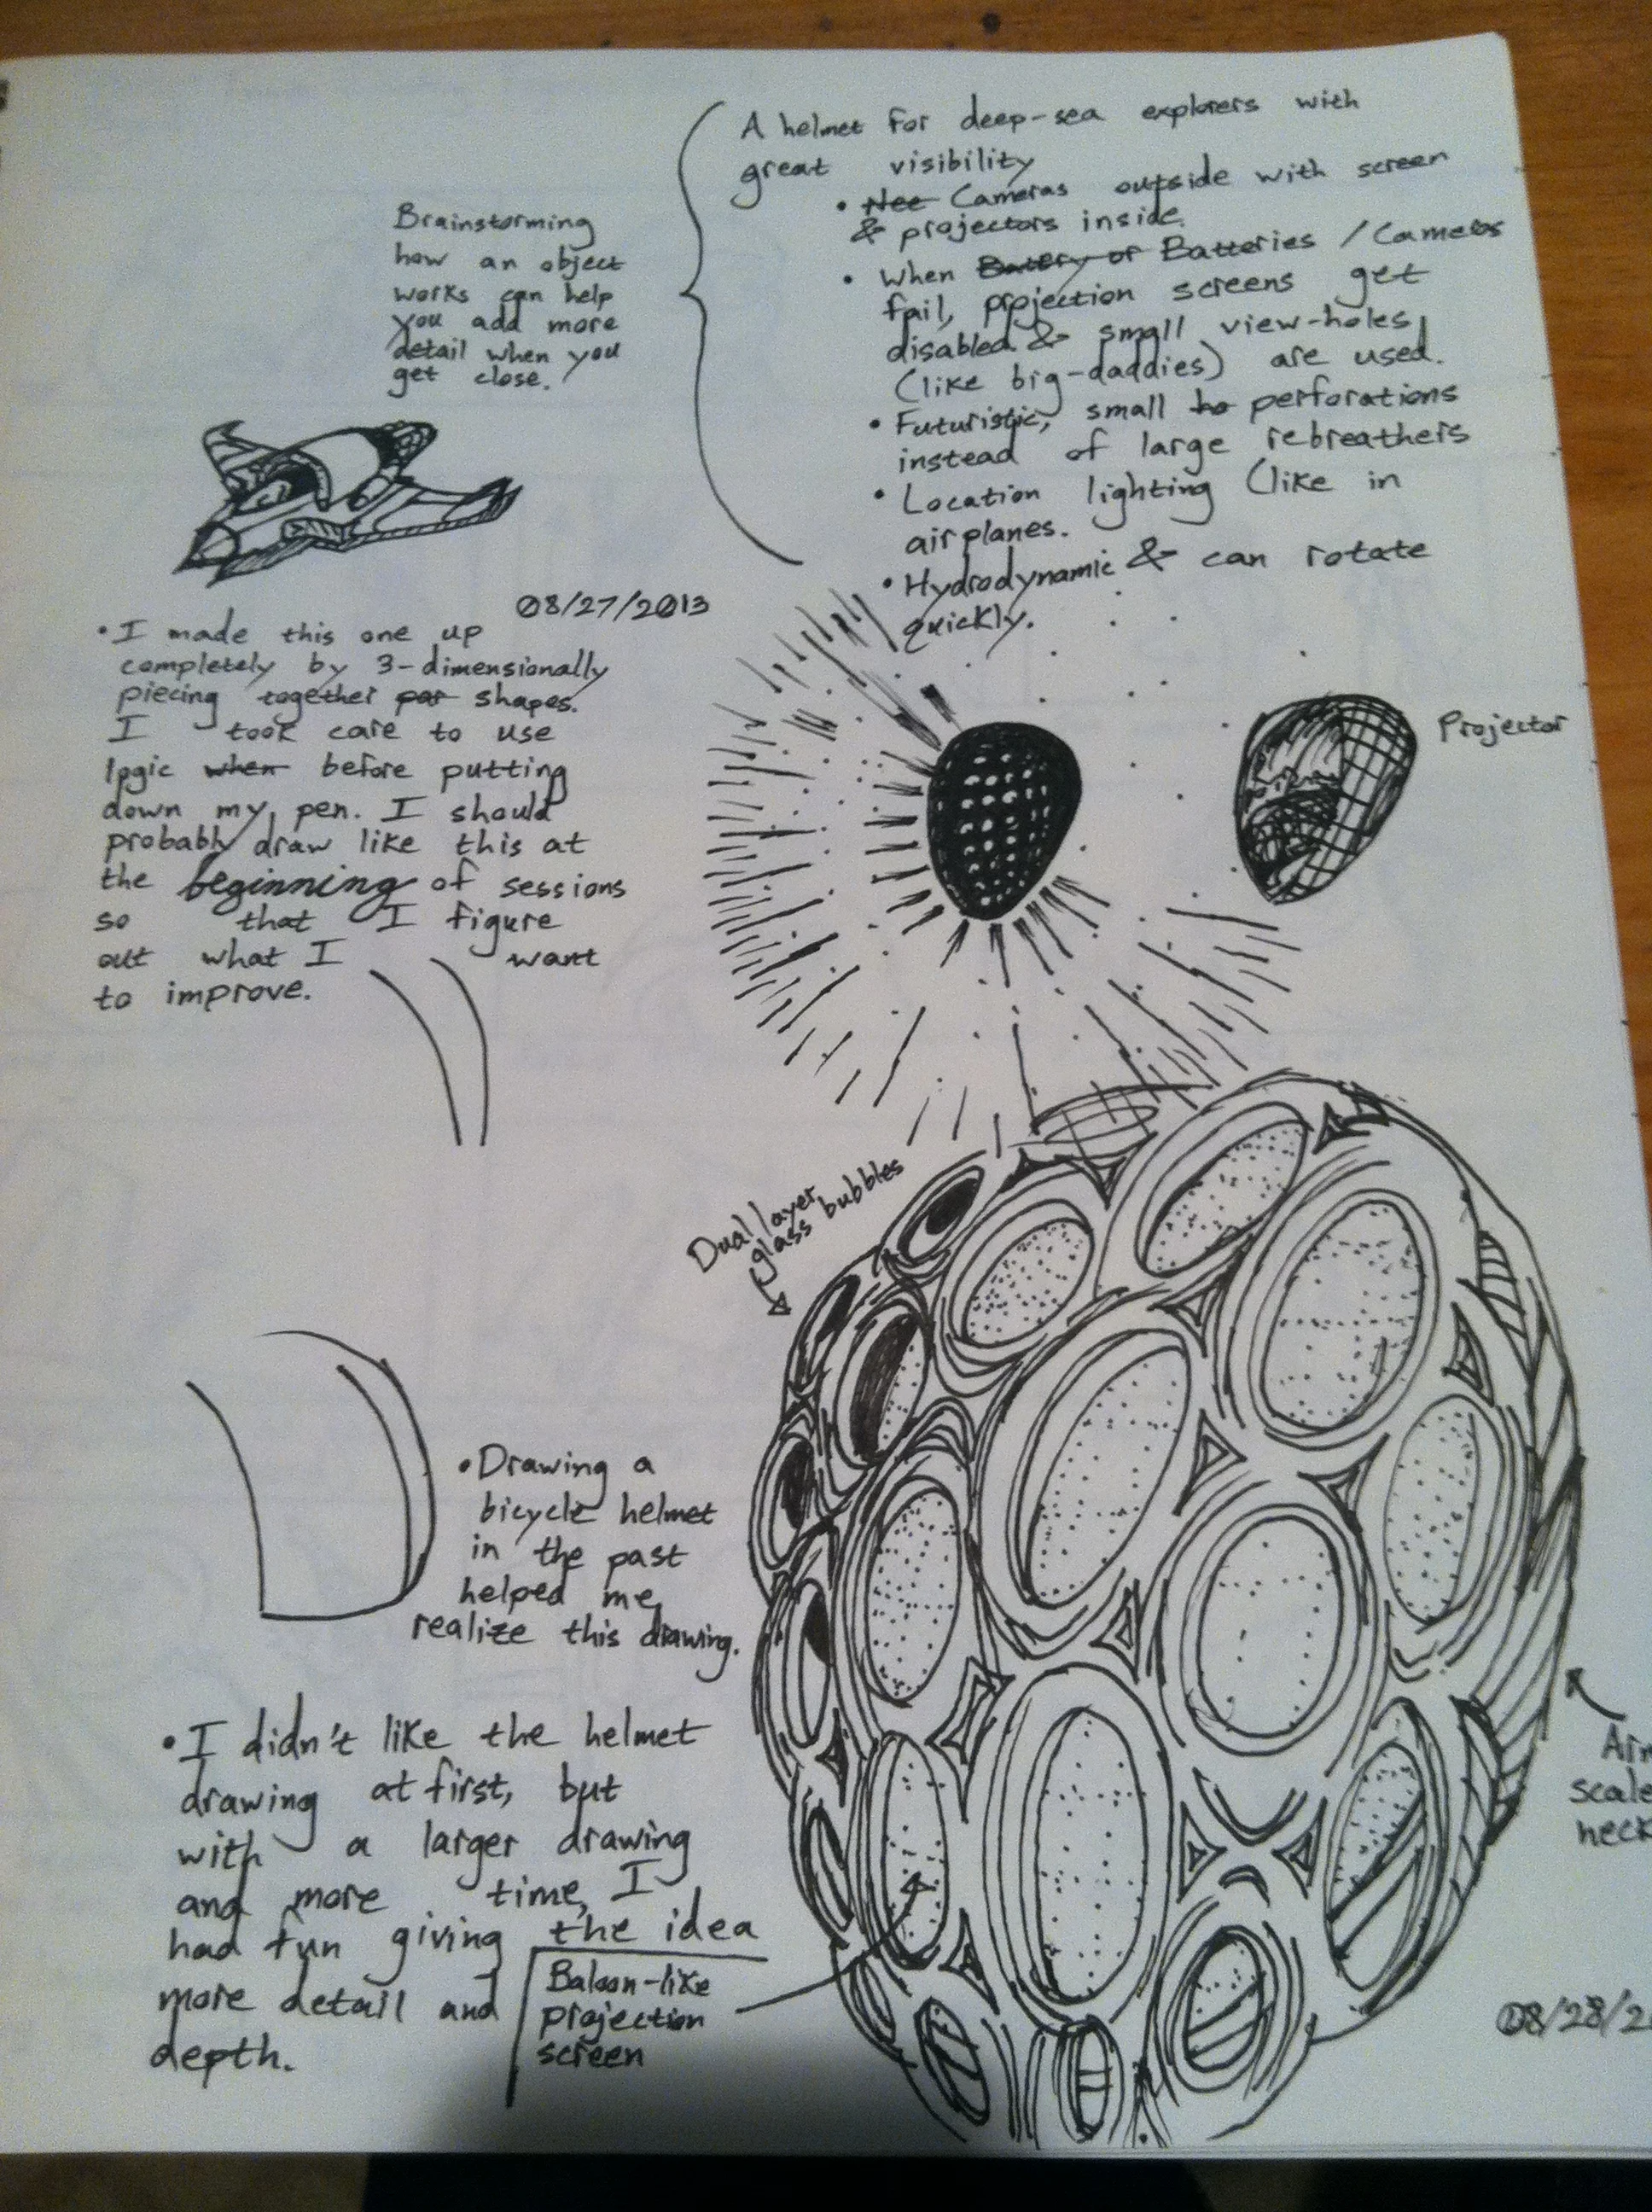 Brainstorming
how an object
works can help
you add more
detail when you
get close.
A helmet for deep-sea explorers with
great visibility
• Nee Cameras outside with screen
& projectors inside.
• When Battery or Batteries / Cameras
fail, projection screens get
disabled & small view-holes
(like big-daddies) are used.
• Futuristic, small ho perforations
instead of large rebreathers
• Location lighting (like in
airplanes.
• Hydrodynamic & can rotate
quickly.
08/27/2013
• I made this one up
completely by 3-dimensionally
piecing together par shapes.
I took care to use
logic when before putting
down my pen. I should
probably draw like this at
the beginning of sessions
so that I figure
out what I want
to improve.
Projector
Dual layer
glass bubbles
• Drawing a
bicycle helmet
in the past
helped me
realize this drawing.
• I didn't like the helmet
drawing at first, but
with a larger drawing
and more time, I
had fun giving the idea
more detail and
depth.
Baloon-like
projection
screen
scale
neck
08/28/2